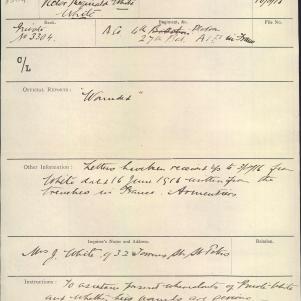 Victor Reginald White
White
Rank.
Regiment, &c.
File No.
Private
No 3304.
O/L
OFFICIAL REPORTS:
"Wounded"
Other Information:
Letters have been received up to from
White dated 16 June 1916 written from the
trenches in France. Armentieres
Inquirer's Name and Address.
Relation.
Mrs J. White, 32 St, St Peters
Instructions: To ascertain present whereabouts of Private White
and whether his wounds are serious